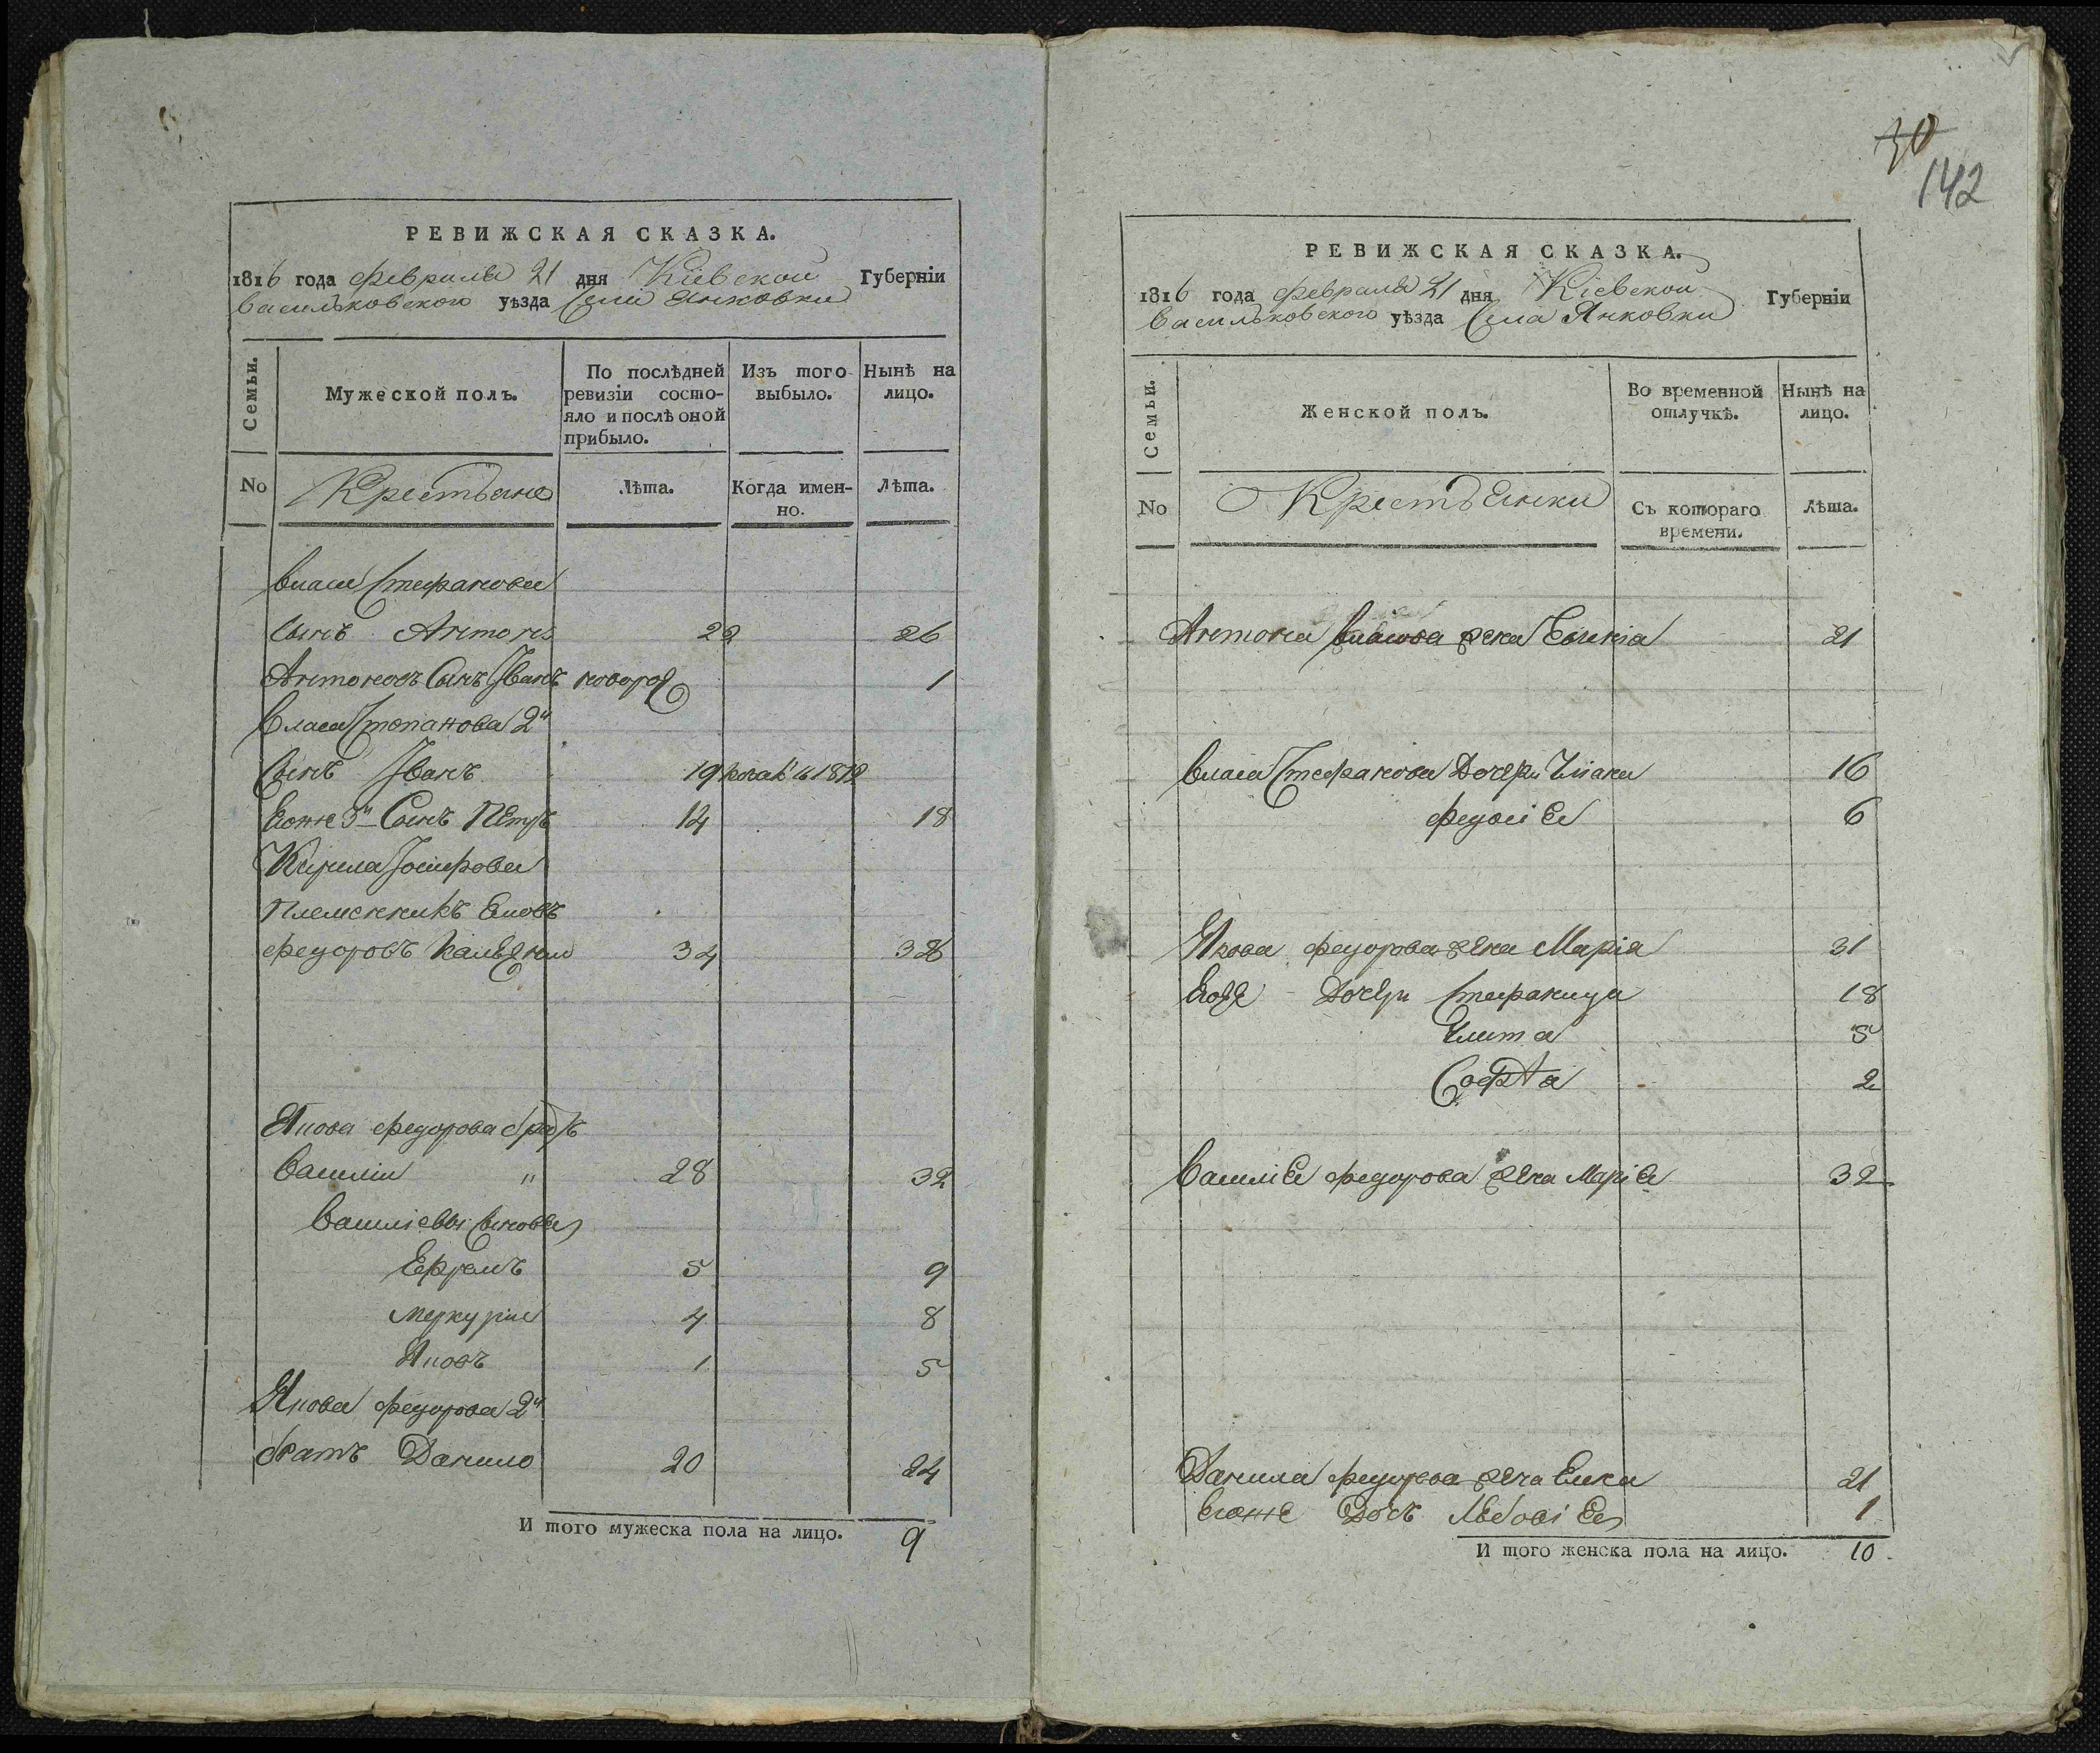 РЕВИЖСКАЯ СКАЗКА.
1816 года февраля 21 дня Кіевской Губерніи
Васильковского уѣзда Села Янковки
Семьи.
Мужеской полъ.
По послѣдней ревизіи состо-
яло и послѣ оной прибыло.
Изъ того выбыло.
Нынѣ на лицо.
No
Крестьяне
Лѣта.
Когда имен-
но.
Лѣта.
Власа Стефанова
Сынъ Антонъ 22 26
Антоновъ Сынъ Іванъ новорож 1
Власа Степанова 2й
Сынъ Іванъ 19 1812
Егоже 3й Сынъ Петръ 14 18
Кирила Іосифова
Племенникъ Яковъ
Федоровъ 34 38
Якова Федорова братъ
Василіи " 28 32
Василіевы Сыновья
Ефремъ 5 9
Меркурии 4 8
Яковъ 1 5
Якова Федорова 2й
братъ Данило 20 24
И того мужеска пола на лицо. 9
30
142
РЕВИЖСКАЯ СКАЗКА.
1816 года февраля 21 дня Кіевской Губерніи
Васильковского уѣзда Села Янковки
Семьи.
Женской полъ.
Во временной отлучкѣ.
Нынѣ на лицо.
No
Крестьянки
Съ котораго времени.
Лѣта.
Антона Власова жена 21
Власа Стефанова Дочери 16
Федосія 6
Якова Федорова жена Марія 31
Его же Дочери Стефанида 18
Улита 5
Софія 2
Василія Федорова жена Марія 32
Данила Федорова жена 21
Егоже Дочь 1
И того женска пола на лицо. 10